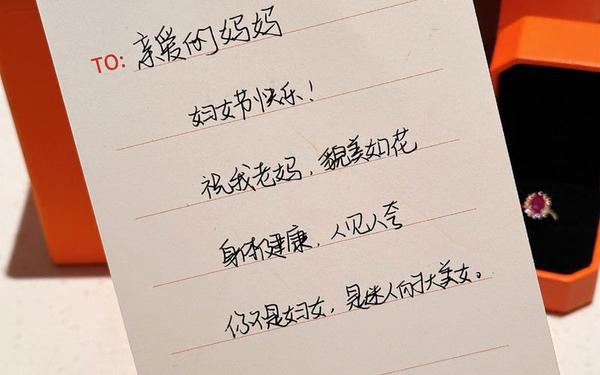 TO: 亲爱的妈妈
妇女节快乐！
祝我老妈，貌美如花
身体健康，人见人夸
你不是妇女，是迷人的大美女。